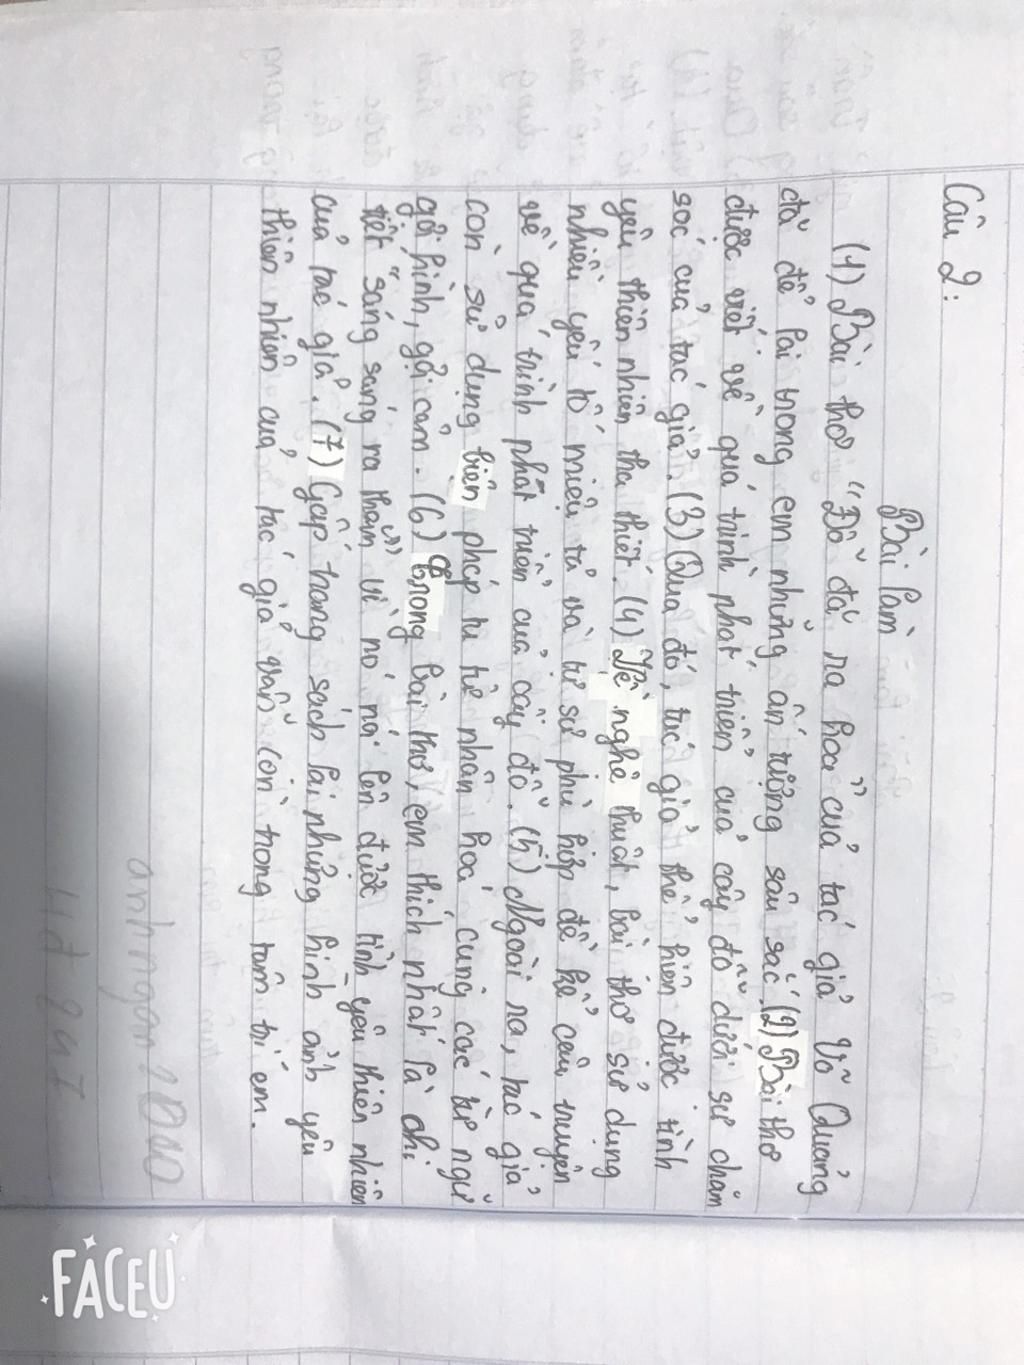 Câu 2:
Bài làm
(1) Bài thơ "Đỗ đá ra hoa" của tác giả Võ Quảng
đã để lại trong em những ấn tượng sâu sắc. (2) Bài thơ
được viết về quá trình phát triển của cây đỗ dưới sự chăm
sóc của tác giả. (3) Qua đó, tác giả thể hiện được tình
yêu thiên nhiên tha thiết. (4) Về nghệ thuật, bài thơ sử dụng
nhiều yếu tố miêu tả và tự sự phù hợp để kể câu truyện
về quá trình phát triển của cây đỗ. (5) Ngoài ra, tác giả
còn sử dụng biện pháp tu từ nhân hoá cùng các từ ngữ
gợi hình, gợi cảm. (6) Trong bài thơ, em thích nhất là chi
tiết "sáng sáng ra thăm" vì nó nói lên được tình yêu thiên nhiên
của tác giả. (7) Gấp trang sách lại những hình ảnh yêu
thiên nhiên của tác giả vẫn còn trong tâm trí em.
FACEU